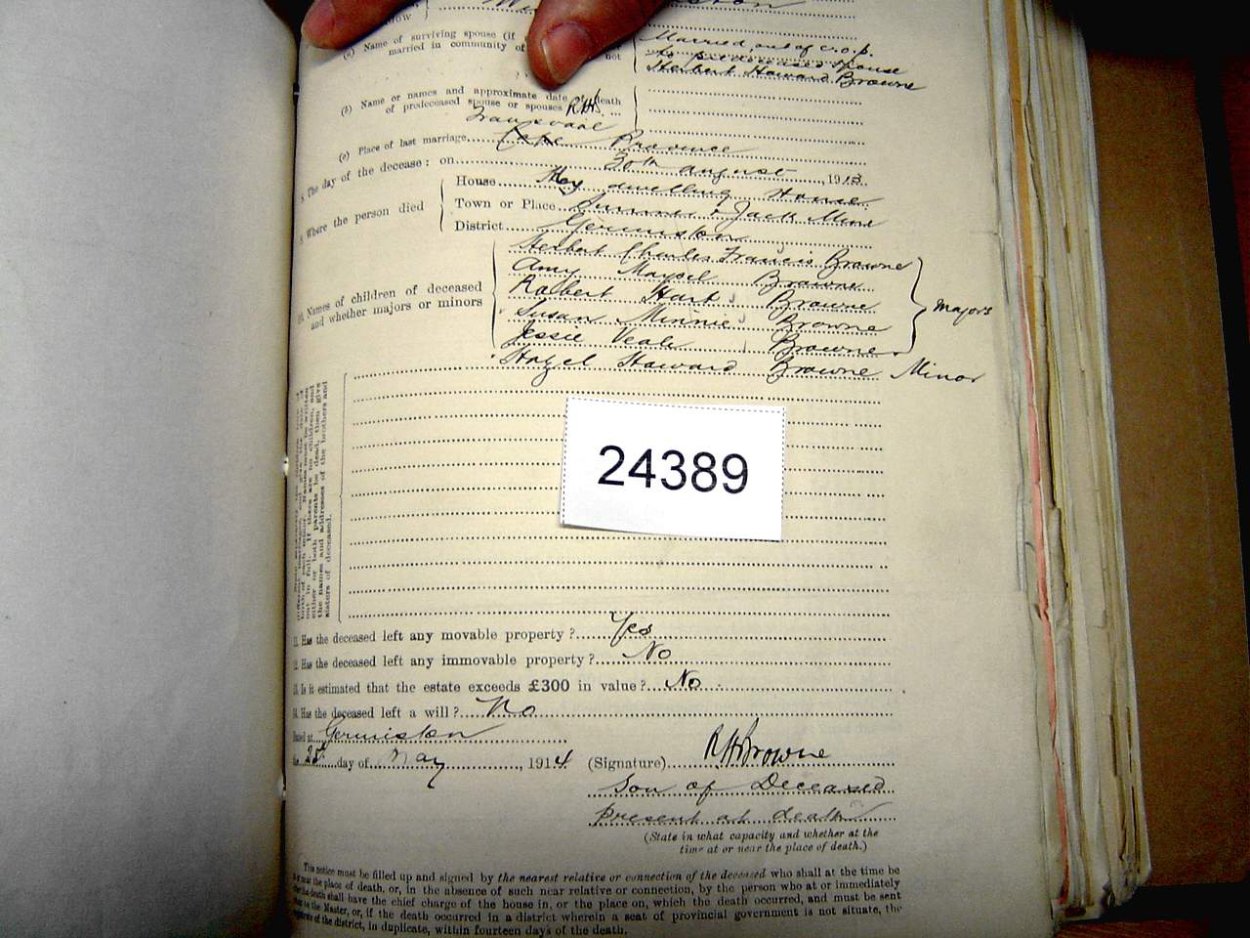 (a) Name of surviving spouse (if
married in community of
not
Married out of c.o.p.
to predeceased spouse
Herbert Howard Browne
(b) Name or names and approximate date death
of predeceased spouse or spouses R.H.B.
Transvaal
(c) Place of last marriage Cape Province
The day of the decease: on 30th August, 1913.
Where the person died
House My dwelling House
Town or Place Simmer & Jack Mine
District Germiston
Names of children of deceased
and whether majors or minors
Herbert Charles Francis Browne
Amy Browne
Robert Hart Browne
Susan Minnie Browne
Jessie Veale Browne
Majors
Hazel Howard Browne Minor
either or both parents be dead, then give
the names and addresses of the brothers and
sisters of deceased.
24389
11. Has the deceased left any movable property? Yes
12. Has the deceased left any immovable property? No
13. Is it estimated that the estate exceeds £300 in value? No
14. Has the deceased left a will? No
Dated at Germiston
25th day of May, 1914 (Signature) RHBrowne
Son of Deceased
Present at death
(State in what capacity and whether at the
time at or near the place of death.)
This notice must be filled up and signed by the nearest relative or connection of the deceased who shall at the time be
near the place of death, or, in the absence of such near relative or connection, by the person who at or immediately
the death shall have the chief charge of the house in, or the place on, which the death occurred, and must be sent
to the Master, or, if the death occurred in a district wherein a seat of provincial government is not situate, the
of the district, in duplicate, within fourteen days of the death.